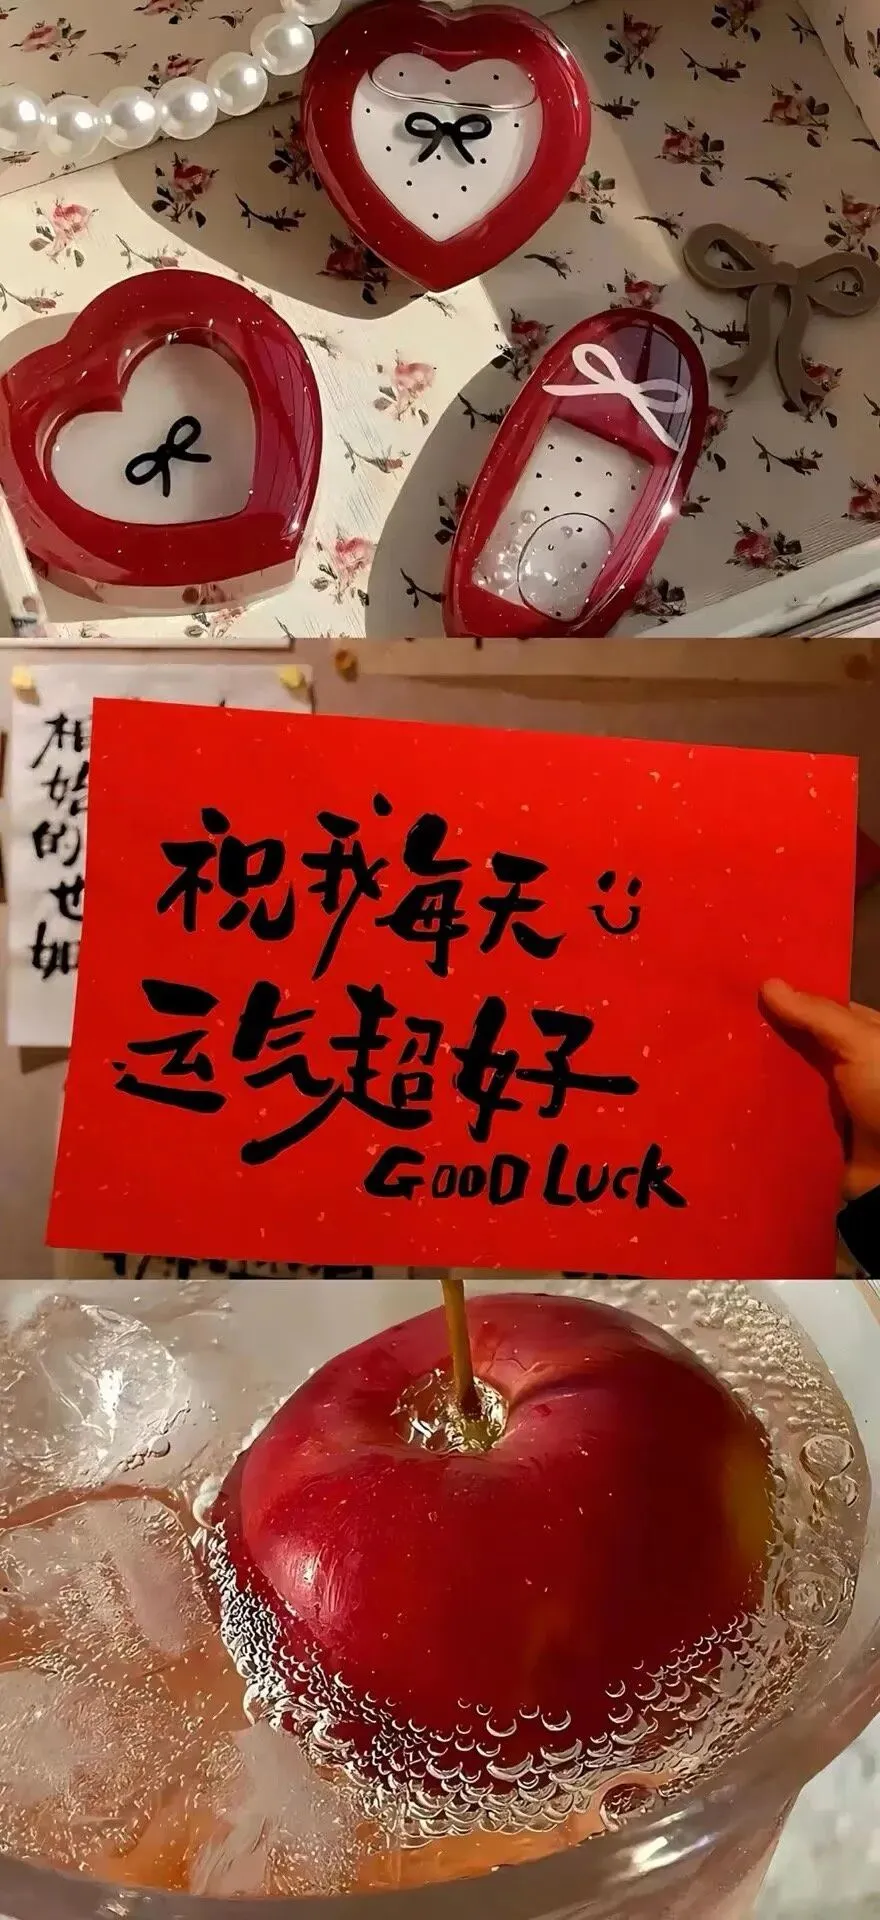 相
始
的
也
如
祝我每天
运气超好
GOOD LUCK